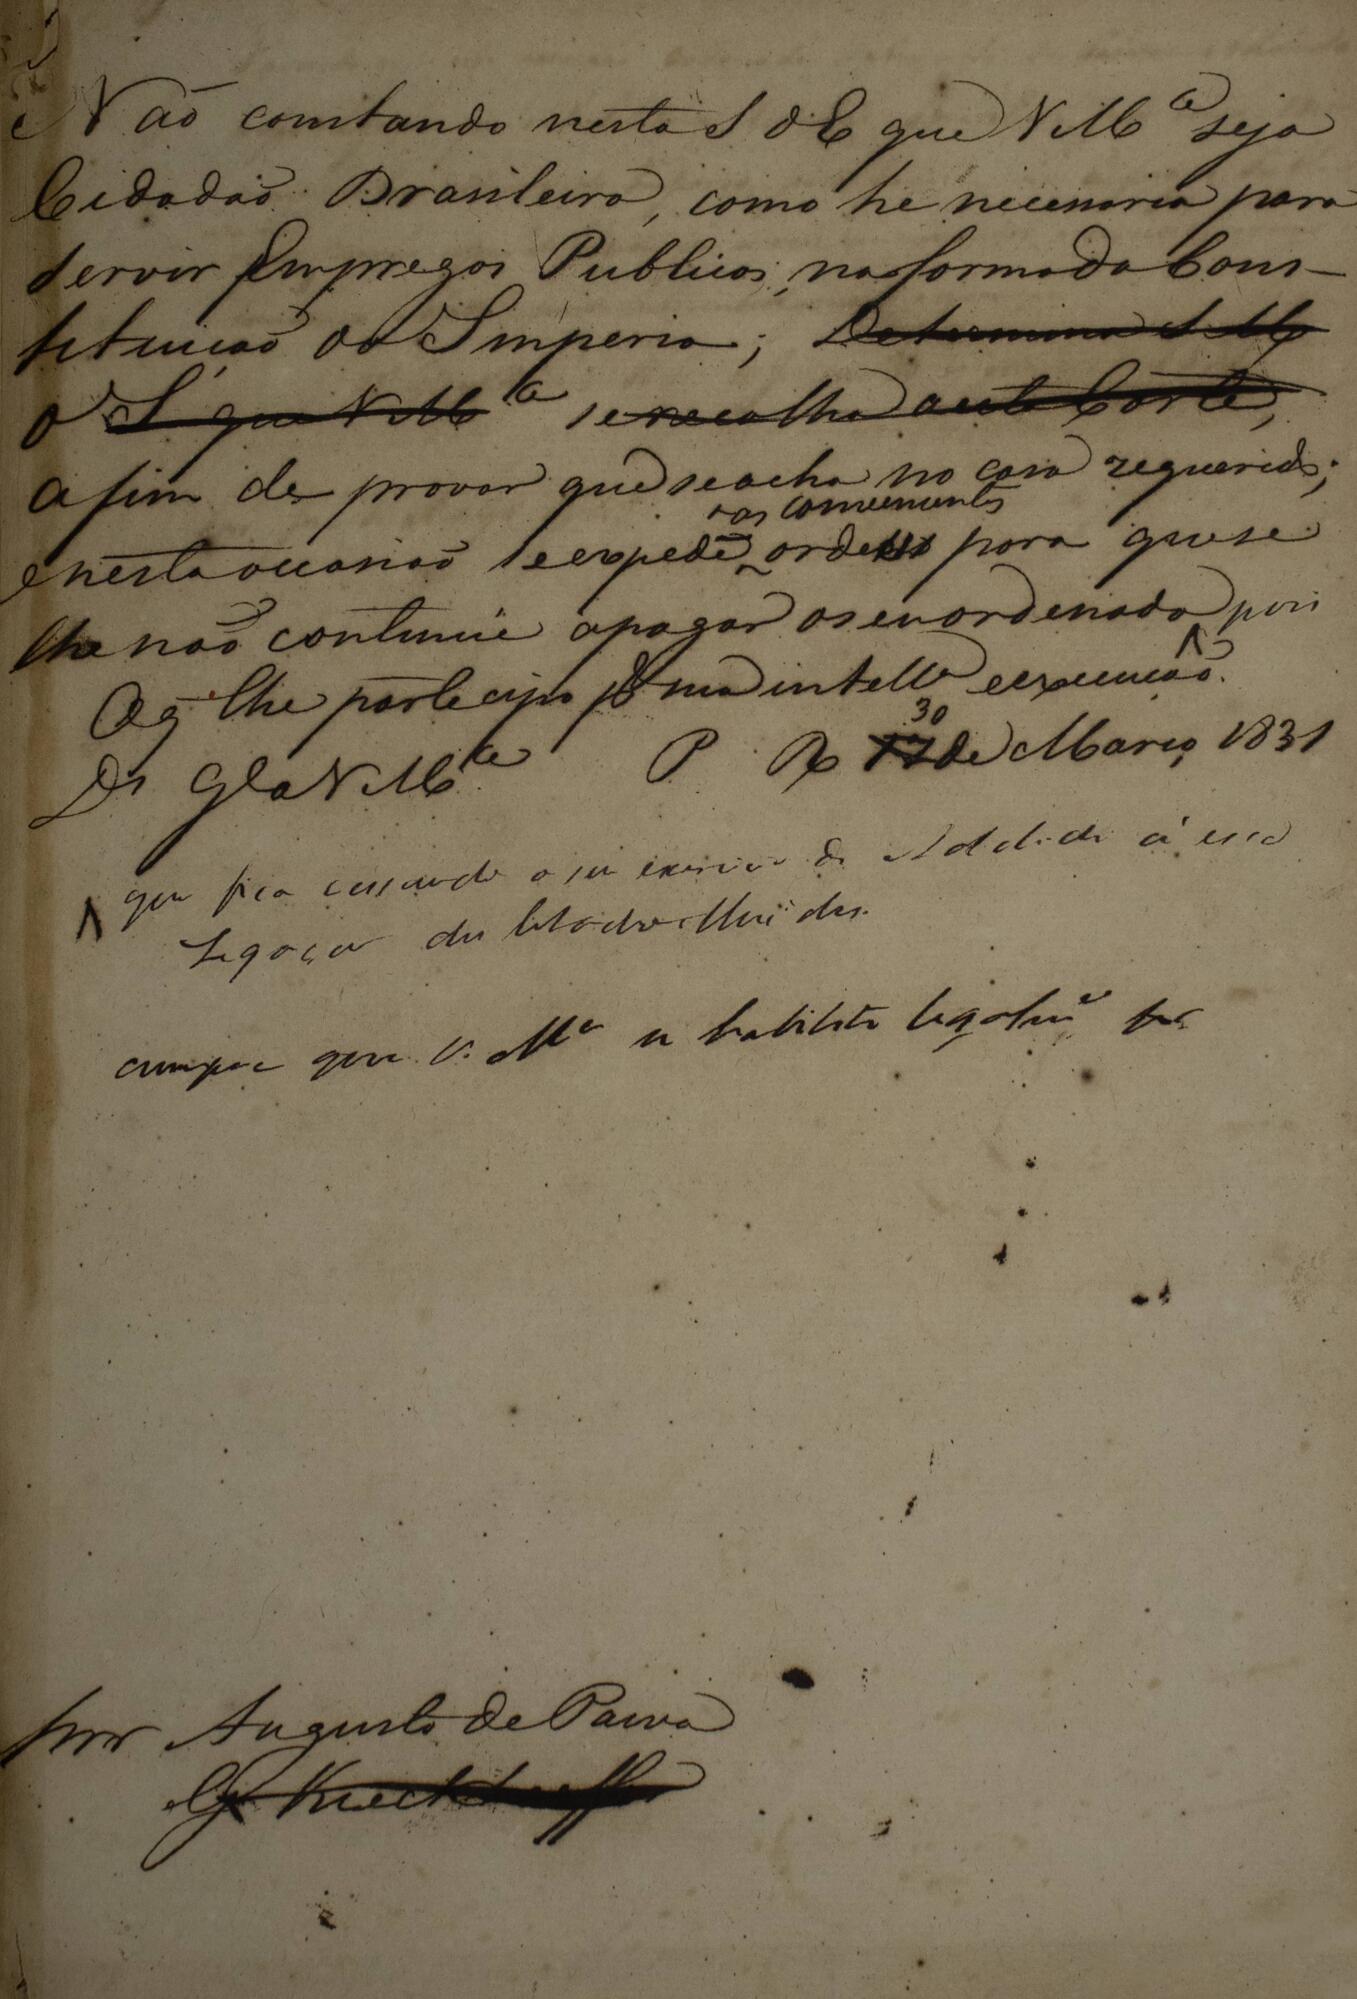 Não constando nesta S d E que V M.ce seja
Cidadão Brasileiro, como he necessario para
servir Empregos Publicos, na forma da Cons-
tituicaõ do Imperio; Determina S M
o I que V M.ce se recolha a esta Corte,
a fim de provar que se acha no caso requerido;
e nesta occasiaõ se expedẽ as convenientes ordens para que se
lhe naõ continúe a pagar o seu ordenado pois
O q lhe participo pa sua intellª e execuçaõ.
Ds Gde a V M.ce P R 17 30 de Março 1831
que fica cessando o seu exercicio de Addido á essa
Legaçaõ
cumpre que V. M.ce se habilite legalm.e
Snr Augusto de Paiva